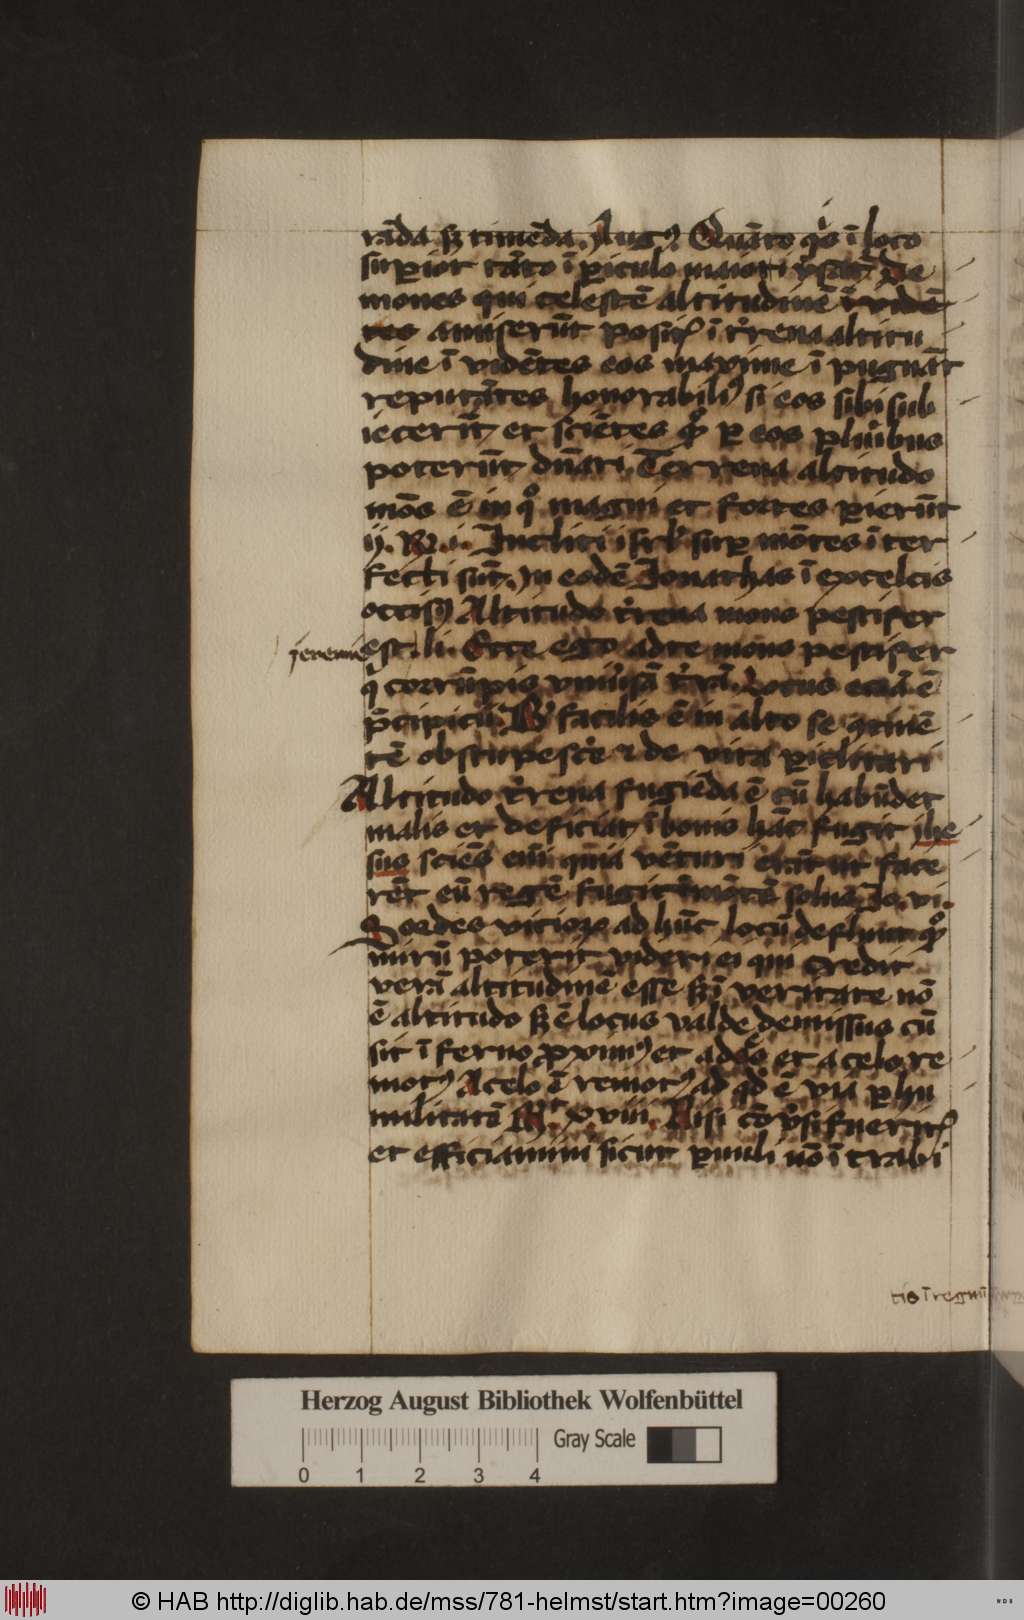 rāda sꝫ timēda. Augꝯ Quāto qͥs ī loco
suꝑior tāto ī ꝑiculo maiori v̓sat᷑ De
mones qui celestē altitudinē īvidē
tes amiserūt positꝭ ī t̓rena altitu
dine ī vidētes eos maxime ī pugnāt
reputātes honorabiliꝰ si eos sibi sub
iecerīt et sciētes qͦ ꝑ eos pluribus
poterūt dn̄ari. Terrena altitudo
mōs ē in qͦ magni et fortes ꝑierūt
ij. R. i. Incliti isrl̓ suꝑ mōtes ī ter
fecti sūt. In eodē Jonathas ī excelcis
occisꝰ Altitudo t̓rena mons pestifer
jeremie
est. li. Ecce ego ad te mons pestifer
qͥ corrūpis vniu̓sā t̓rā. Locus etiā ē
p̄cipiciū facilis ē in alto se ꝯtinē
tē obstupesc̓e ⁊ de vita ꝑiclitari
Altitudo t̓rena fugiēda ē cū habūdet
malis et deficiat ī bonis hāc fugit ihe
sus sciēs em̄ qm̄ia vēturi erāt ut face
rēt eū regē fugit ī mōtē solus Jo. vi.
Sordes vicioꝝ ad hūc locū defluūt qͦ
mirū poterit videri ei qui credit
verā altitudinē esse sꝫ ī veritate nō
ē altitudo sꝫ ē locus valde demissus cū
sit ī ferno ꝓximꝰ et ad eos et a celo re
motꝰ A celo ē remotꝰ ad qd̄ ē via ꝑ hu
militatē Mt xviii. Nisi cōv̓si fueritꝭ
et efficiamini sicut ꝑuuli nō ī trabi
tis ī regnū
Herzog August Bibliothek Wolfenbüttel
Gray Scale
0 1 2 3 4
© HAB http://diglib.hab.de/mss/781-helmst/start.htm?image=00260